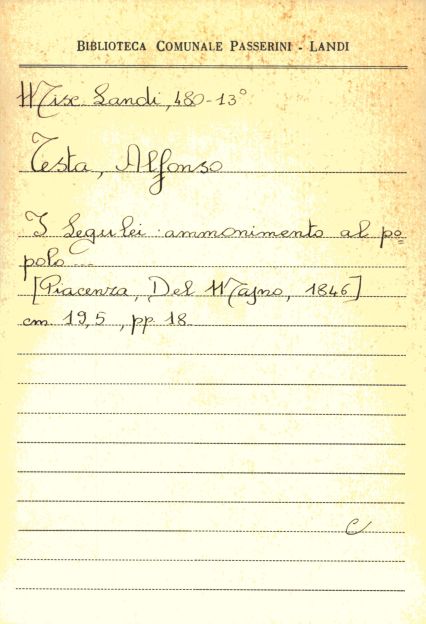 BIBLIOTECA COMUNALE PASSERINI - LANDI
Misc. Landi, 480-13°
Testa, Alfonso
I Legulei: ammonimento al po=
polo...
[Piacenza, Del Majno, 1846]
cm 19,5, pp 18
C